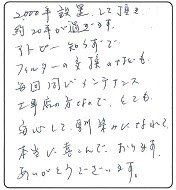 2000年設置して頂き
約20年が過ぎます。
アトピー知らずで
フィルターの交換の丈も
毎回同じメンテナンス
工事店の方なので、とても
安心して、馴染みになれて
本当に喜んでおります。
ありがとうございます。